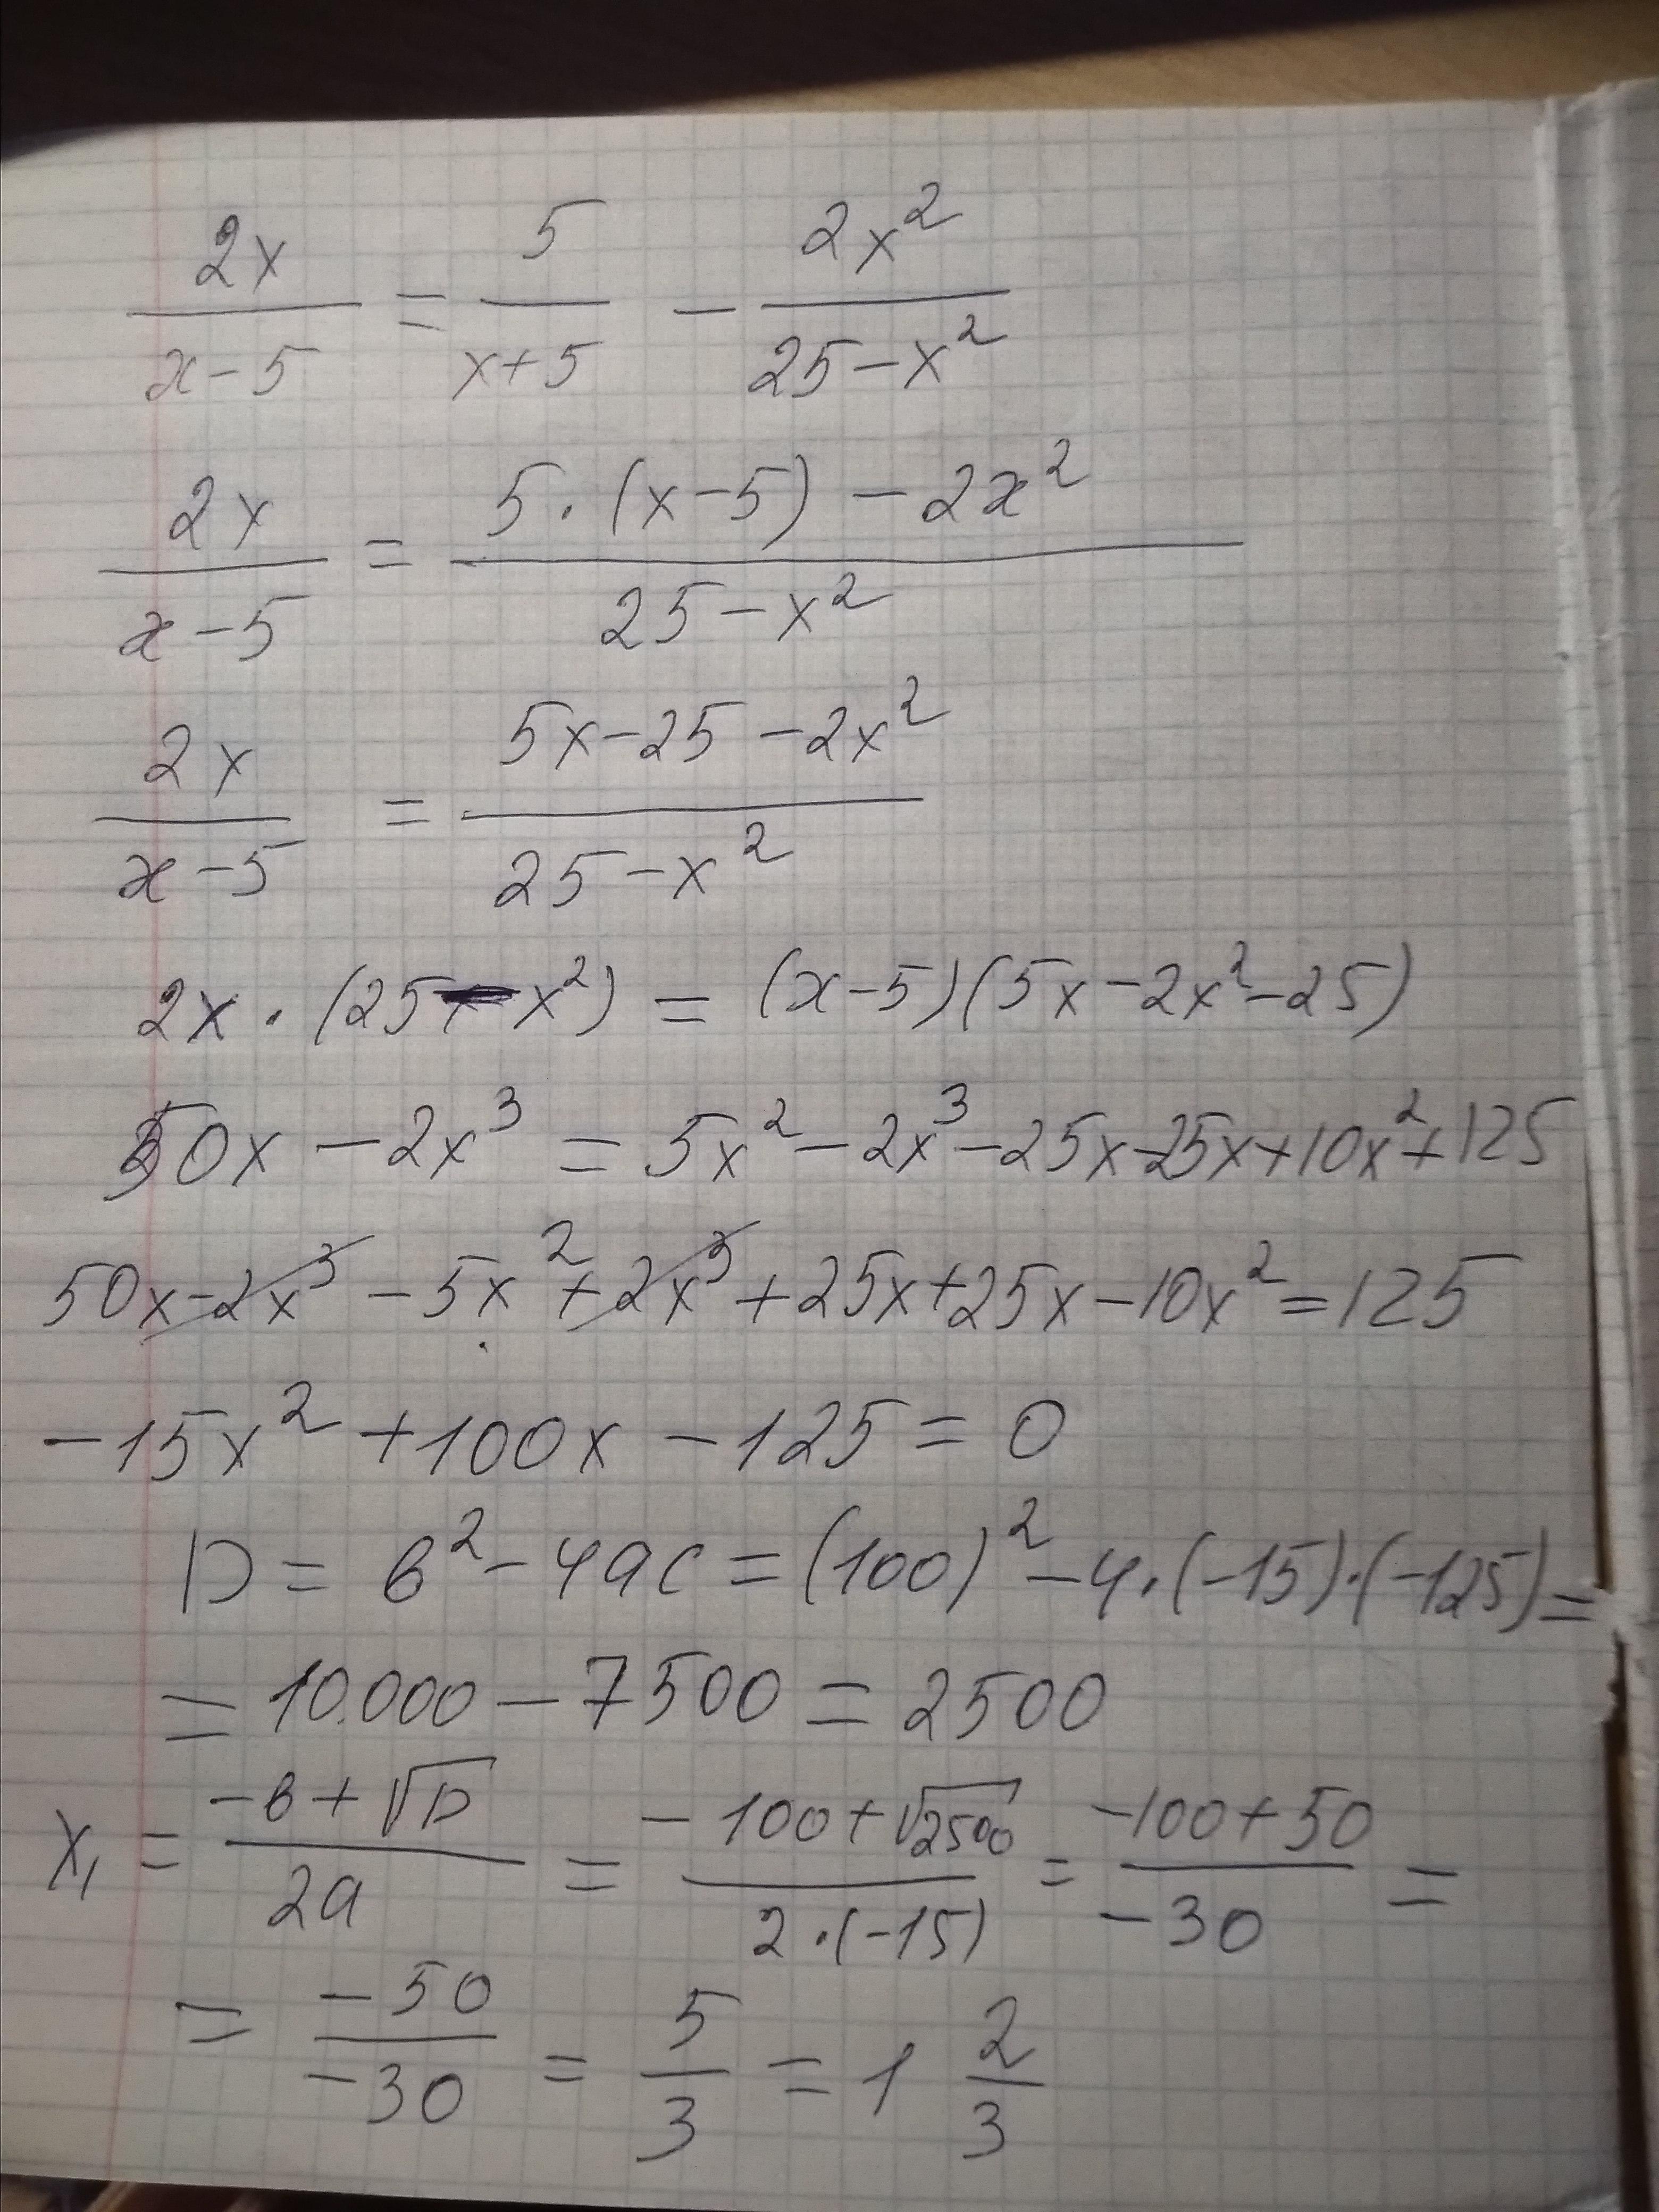 2x/(x-5) = 5/(x+5) - 2x²/(25-x²)
2x/(x-5) = (5·(x-5) - 2x²)/(25-x²)
2x/(x-5) = (5x-25-2x²)/(25-x²)
2x·(25-x²) = (x-5)(5x-2x²-25)
50x - 2x³ = 5x² - 2x³ - 25x - 25x + 10x² + 125
50x - 2x³ - 5x² + 2x³ + 25x + 25x - 10x² = 125
-15x² + 100x - 125 = 0
D = в² - 4ac = (100)² - 4·(-15)·(-125) =
= 10.000 - 7500 = 2500
x₁ = (-в+√D)/2a = (-100+√2500)/(2·(-15)) = (-100+50)/(-30) =
= -50/-30 = 5/3 = 1 2/3